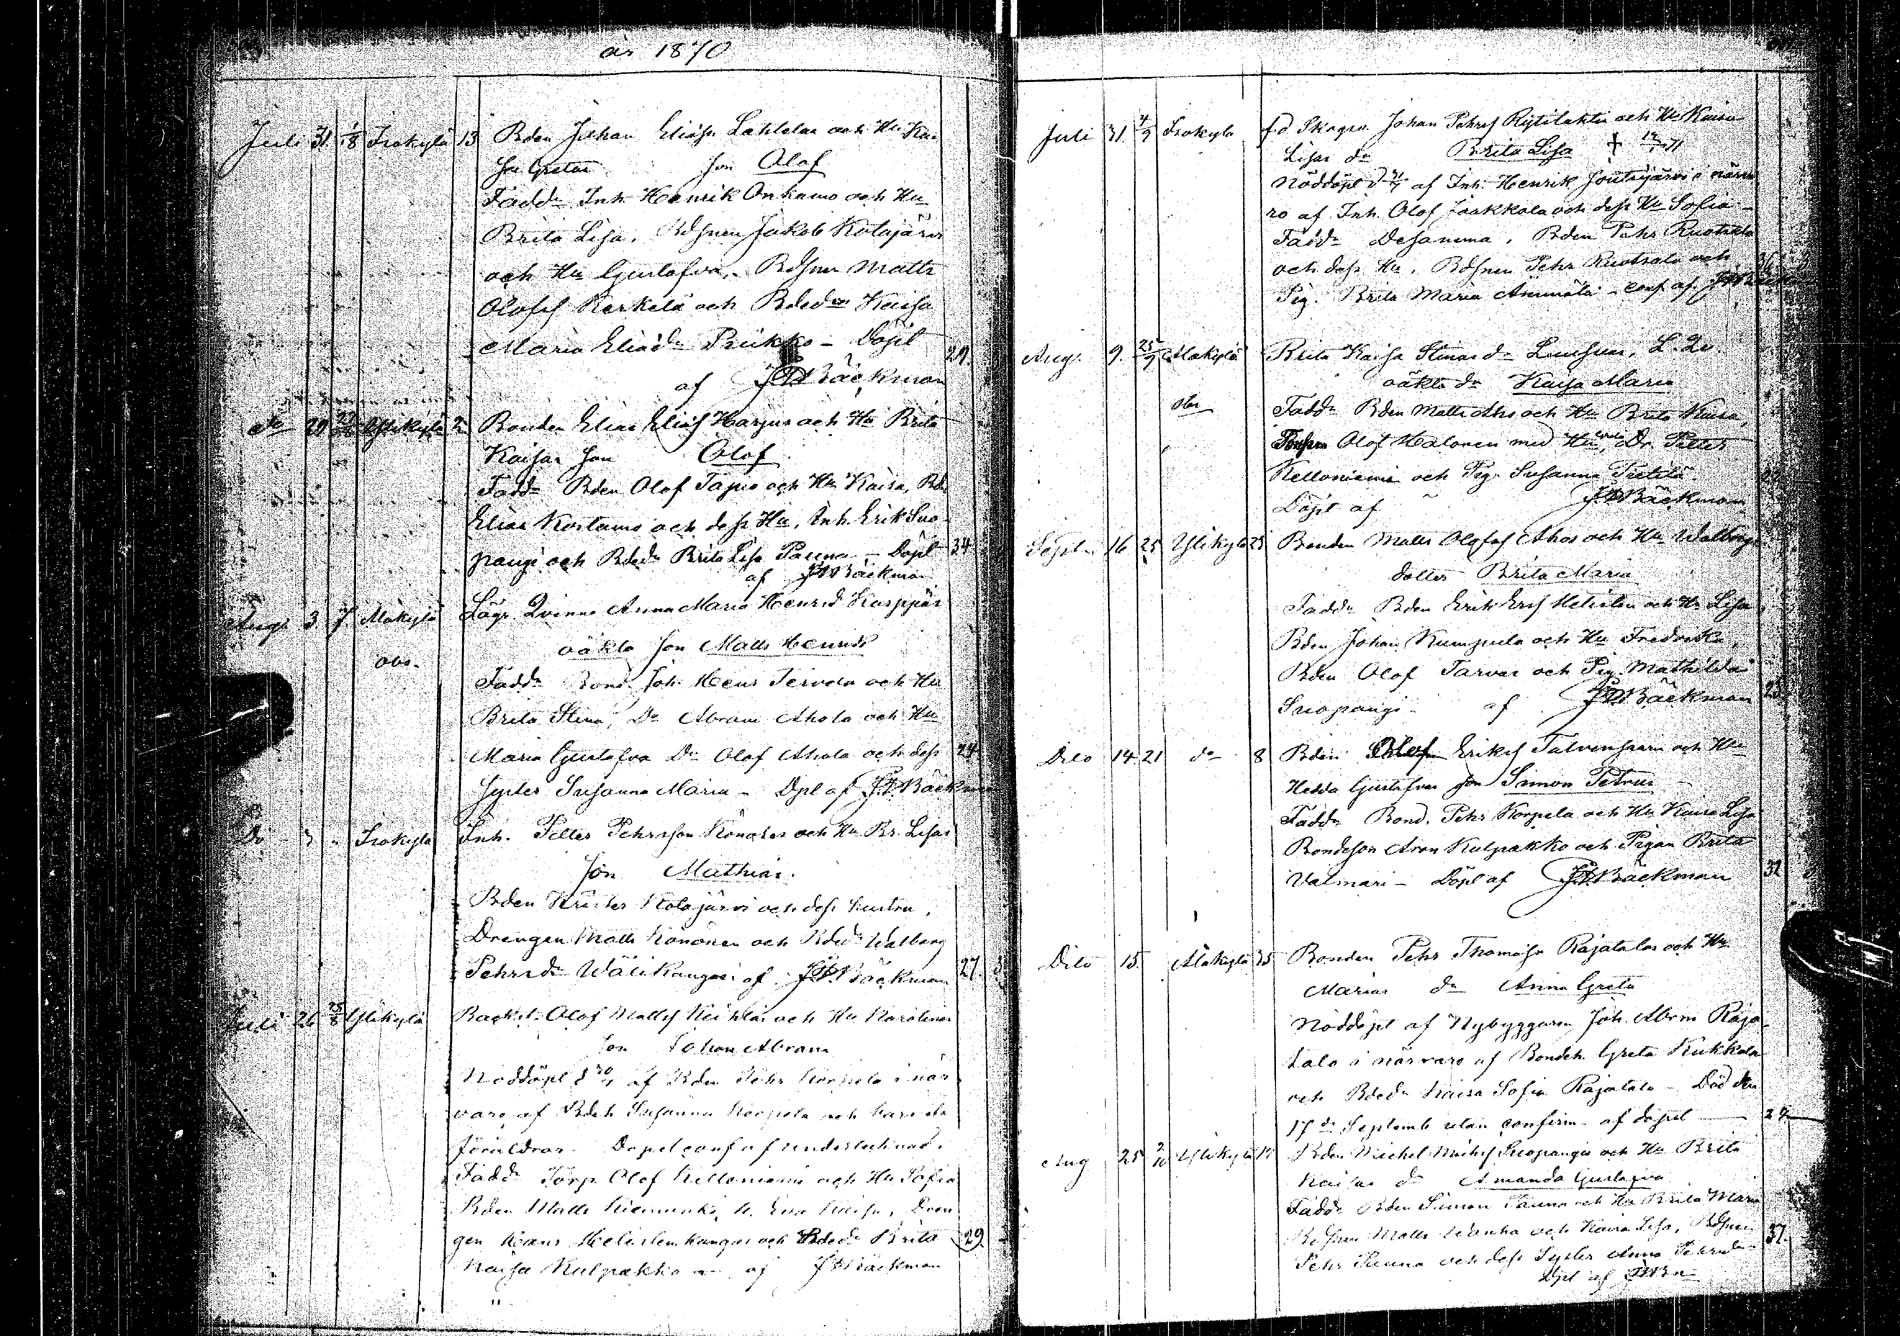 år 1870
Juli 31 1/8 Irokylä 13 Bden Johan Eliass Lahtela och Hu Kai
sa Gretas son Olof
Fadd. Inh. Henrik Onkamo och Hu
Brita Lisa, Bdsnen Jakob Kolajärvi
och Hu Gustafva, Bdsnen Matts
Olofss Kerkelä och Bdedn Kaisa
Maria Eliadr Prikko – Döpt 29.
af Bäckman
Do 29 Ylikylä 2 Bonden Elias Eliass Harjus och Hu Brita
Kaisas son Olof
Fadd. Bden Olof Tapio och Hu Kaisa, Bd.
Elias Kostamo och dess Hu, Inh. Erik Suo-
pangi och Bdedr Brita Lisa Pauna – Döpt 34
af Bäckman
Aug. 3 7 Alakylä Lösg. Qvinna Anna Maria Henrsd
oäkta son Matts Henrik
obs.
Fadd. Bond. Joh. Henr Tervola och Hu
Brita Stina, Do Abram Ahola och Hu
Maria Gustafva Do Olof Ahola och dess 24
syster Susanna Maria – Dpt af Bäckman
Do 3 " Irokylä Inh. Petter Pehrsson Könönens och Hu Br. Lisas
son Mathias.
Bden Krister Kolajärvi och dess hustru,
Drengen Matts Könönen och Bdedr Walborg
Pehrsdr Wälikangas af Bäckman 27.
Juli 26 Ylikylä Olof Mattss och Hu Karolinas
son Johan Abram
Nöddöpt d af Bden Pehr Korpela i när
varo af Bdeh Susanna Korpela och barnets
föräldrar. Döpet conf af undertecknad.
Fadd. Torp. Olof Kelloniemi och Hu Sofia
Bden Matts Niemenki, h. Eva Kaisa, Dren
gen Hans och Bdedr Brita 29
Kaisa Kulpakko – af Bäckman
Juli 31. 4/9 Irokylä fd Skogsv. Johan Pehrss Rytilahti och Hu Kaisa
Lisas dr Brita Lisa † 71
Nöddöpt d af Inh. Henrik Joutsijärvi i närva
ro af Inh. Olof Jaakkola och dess Hu Sofia –
Fadd. Desamma, Bden Pehr Ruotsala
och dess Hu, Bdsnen Pehr Ruotsala och
Pig. Brita Maria – conf. af Bäckman
Aug. 9. 25/9 Alakylä Brita Kaisa d
oäkta dr Kaisa Maria
obs
Fadd. Bden Matts Aho och Hu Brita Kaisa,
Olof Halonen med Hu, Dr. Petter
Kelloniemi och Pig. Susanna
Döpt af Bäckman
Sept. 16 25 Ylikylä 25 Bonden Matts Olofss Ahos och Hu Walborgs
dotter Brita Maria
Fadd. Bden Erik Erss och Hu Lisa
Bden Johan Kumpula och Hu Fredrika,
Bden Olof Tarvas och Pig. Mathilda
Suopangi – af Bäckman 23.
Dito 14 21 do 8 Bden Olof Erikss Talvensaari och Hu
Hedda Gustafvas son Simon Petrus –
Fadd. Bond. Pehr Korpela och Hu Kaisa Lisa
Bondeson Aron Kulpakko och Pigan Brita
Valmari – Döpt af Bäckman 32
Dito 15. Alakylä 35 Bonden Pehr Thomass Rajatalos och Hu
Marias dr Anna Greta
Nöddöpt af Nybyggaren Joh. Abrm Raja-
talo i närvaro af Bondeh. Greta Kukkola
och Bdedr Kaisa Sofia Rajatalo – Död den
17de Septemb utan confirm. af döpet 24
Aug 25 2/10 Ylikylä Bden Michel Michss Suopangis och Hu Brita
Kaisas dr Amanda Gustafva
Fadd. Bden Simon Pauna och Hu Brita Maria
Bdsnen Matts Wanha och Kaisa Lisa, Bdsnen
Pehr Pauna och dess Syster Anna Pehrsdr 37.
Dpt af